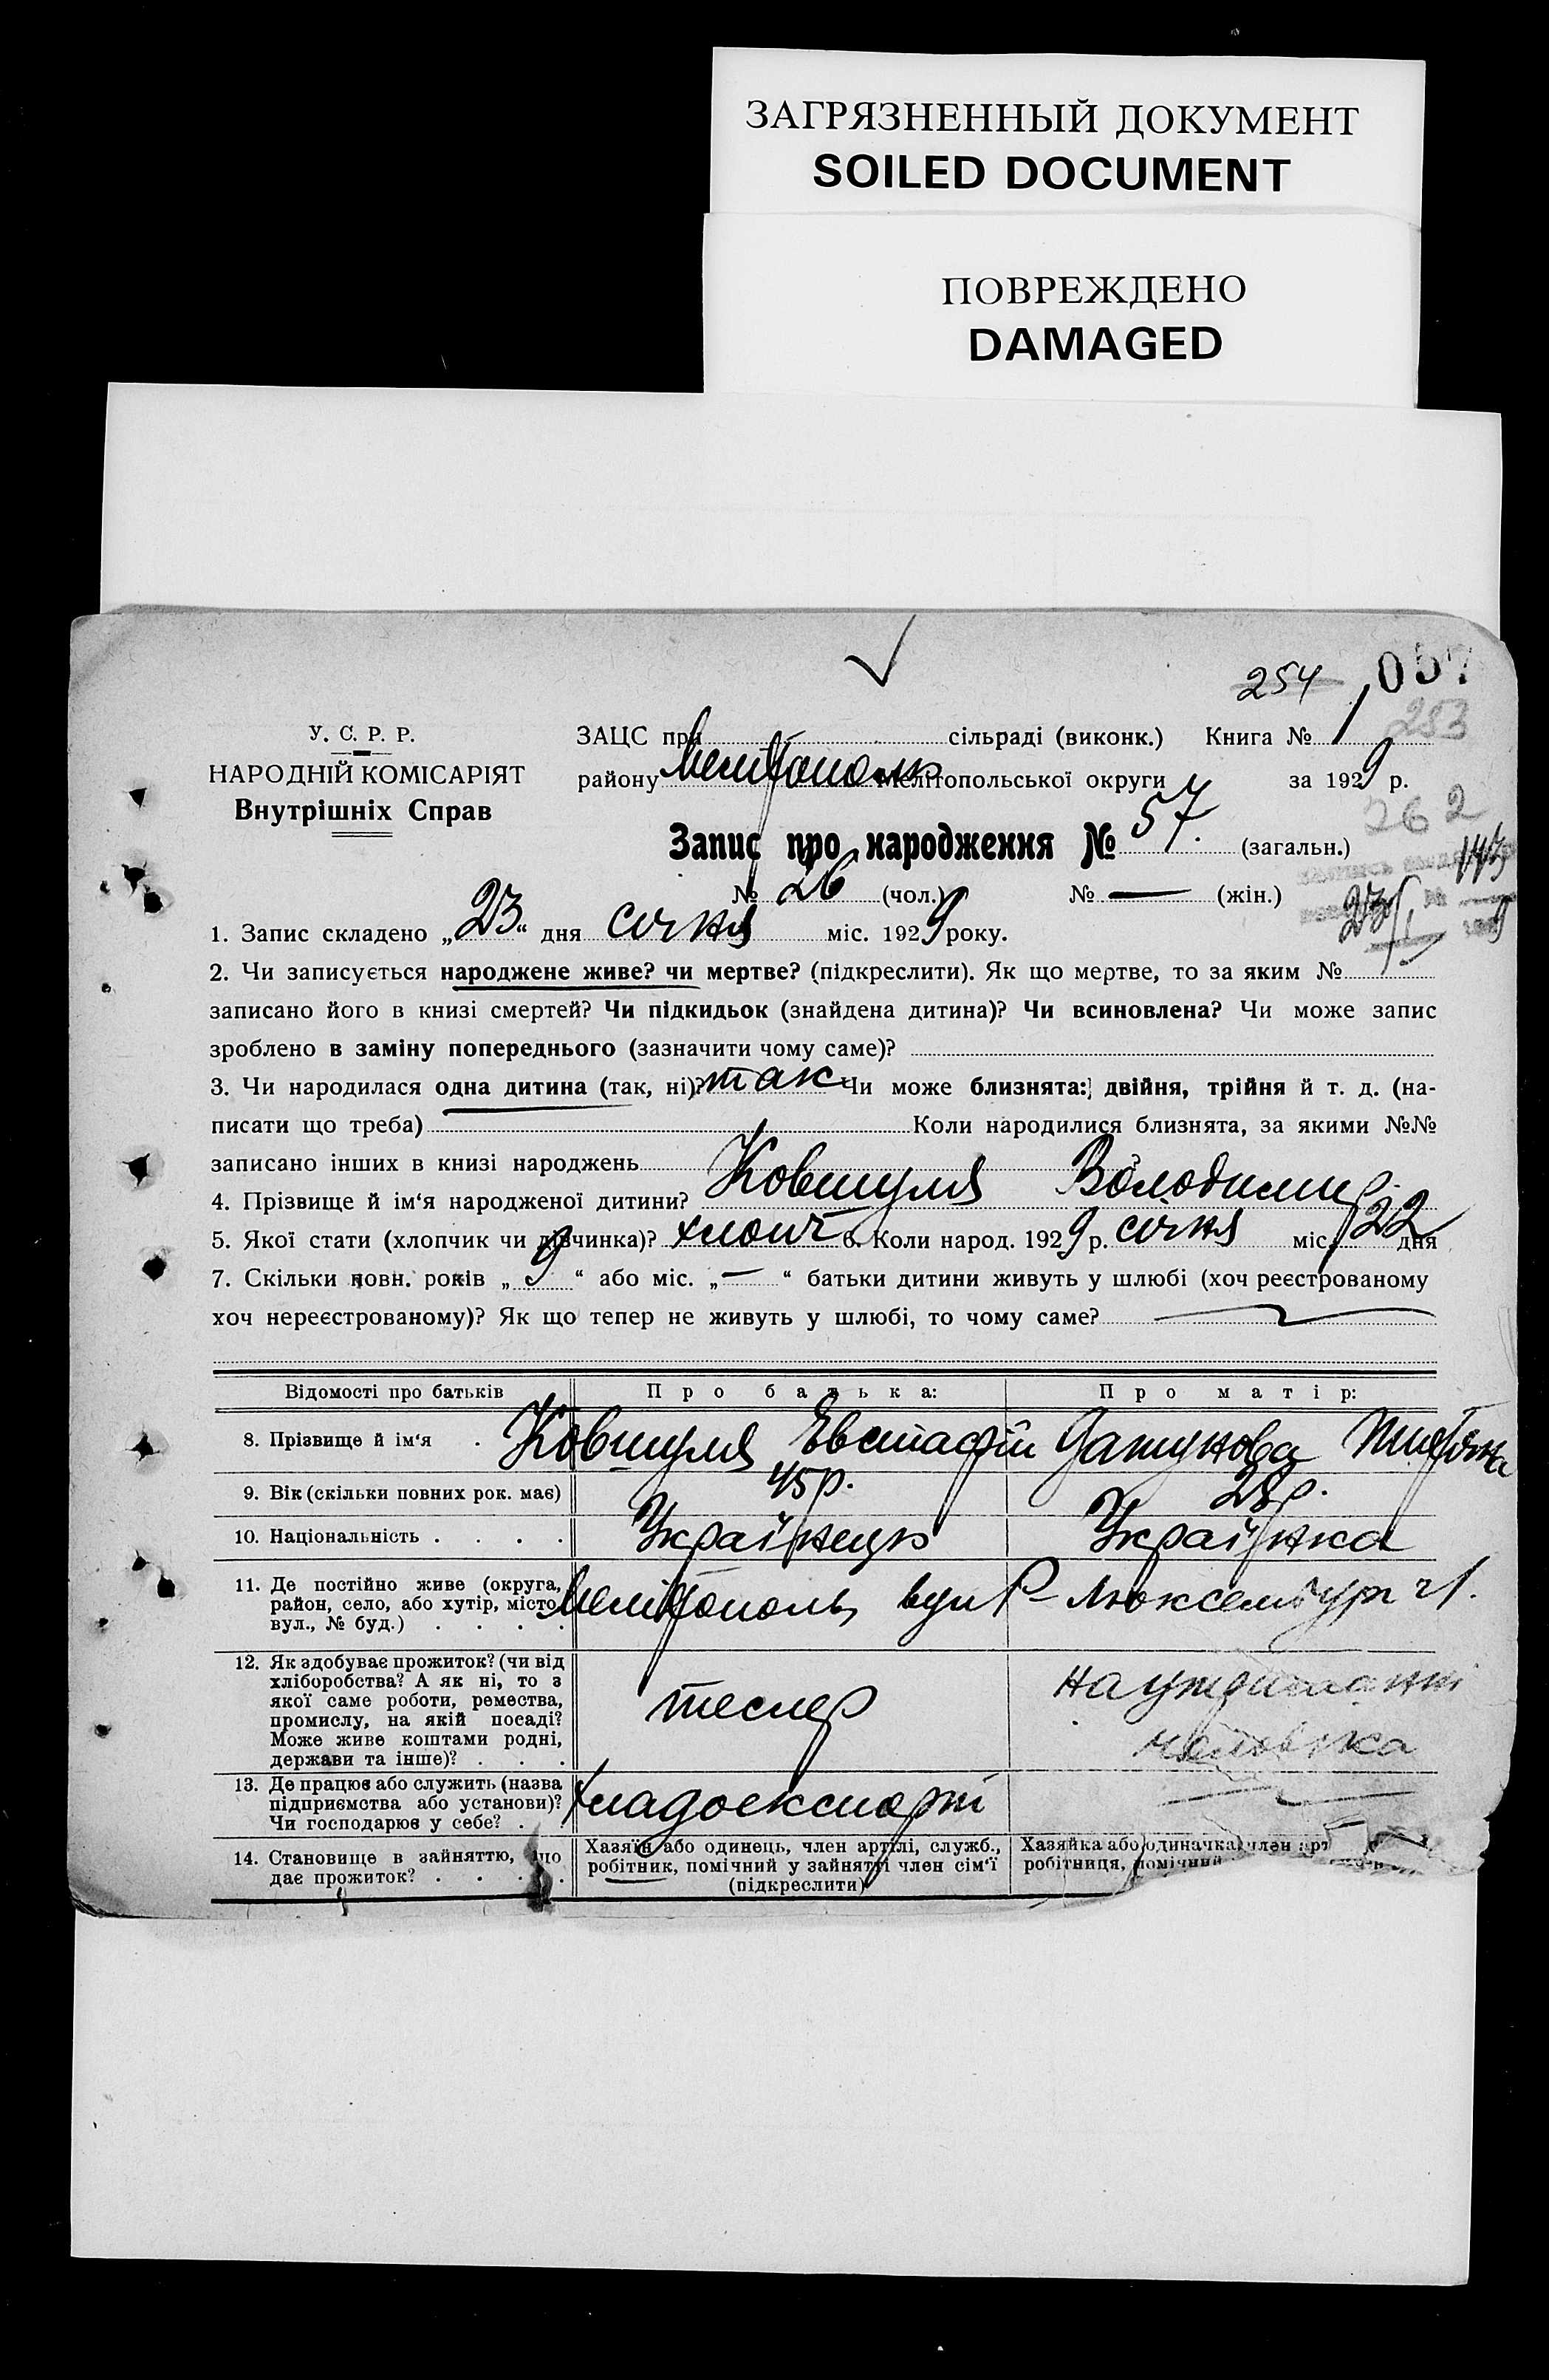 ЗАГРЯЗНЕННЫЙ ДОКУМЕНТ
SOILED DOCUMENT
ПОВРЕЖДЕНО
DAMAGED
254 057
253
У. С. Р. Р.
НАРОДНІЙ КОМІСАРІЯТ
Внутрішніх Справ
ЗАЦС при сільраді (виконк.) Книга № 1
району Мелітополь Мелітопольської округи за 1929 р.
262
Запис про народження № 57. (загальн.)
№ 26 (чол.) № — (жін.)
1. Запис складено „23“ дня січня міс. 1929 року.
2. Чи записується народжене живе? чи мертве? (підкреслити). Як що мертве, то за яким №
записано його в книзі смертей? Чи підкидьок (знайдена дитина)? Чи всиновлена? Чи може запис
зроблено в заміну попереднього (зазначити чому саме)?
3. Чи народилася одна дитина (так, ні)? так Чи може близнята: двійня, трійня й т. д. (на-
писати що треба) Коли народилися близнята, за якими №№
записано інших в книзі народжень
4. Прізвище й ім‘я народженої дитини? Ковшуля Володимир
5. Якої стати (хлопчик чи дівчинка)? хлопч 6. Коли народ. 1929 р. січня міс. 22 дня
7. Скільки повн. років „9“ або міс. „—“ батьки дитини живуть у шлюбі (хоч реєстрованому
хоч нереєстрованому)? Як що тепер не живуть у шлюбі, то чому саме?
Відомості про батьків Про батька: Про матір:
8. Прізвище й ім‘я Ковшуля Евстафій
9. Вік (скільки повних рок. має) 45р. 28р.
10. Національність Українець Українка
11. Де постійно живе (округа,
район, село, або хутір, місто
вул., № буд.) Мелітополь, вул Р-Люксембург 21.
12. Як здобуває прожиток? (чи від
хліборобства? А як ні, то з
якої саме роботи, ремества,
промислу, на якій посаді?
Може живе коштами родні,
держави та інше)? тесляр на утриманні
чоловіка
13. Де працює або служить (назва
підприємства або установи)?
Чи господарює у себе? Хладоекспорт
14. Становище в зайняттю, що
дає прожиток?
Хазяїн або одинець, член артілі, служб.,
робітник, помічний у зайнятті член сім‘ї
(підкреслити)
Хазяйка або одиначка, член арт
робітниця, помічний